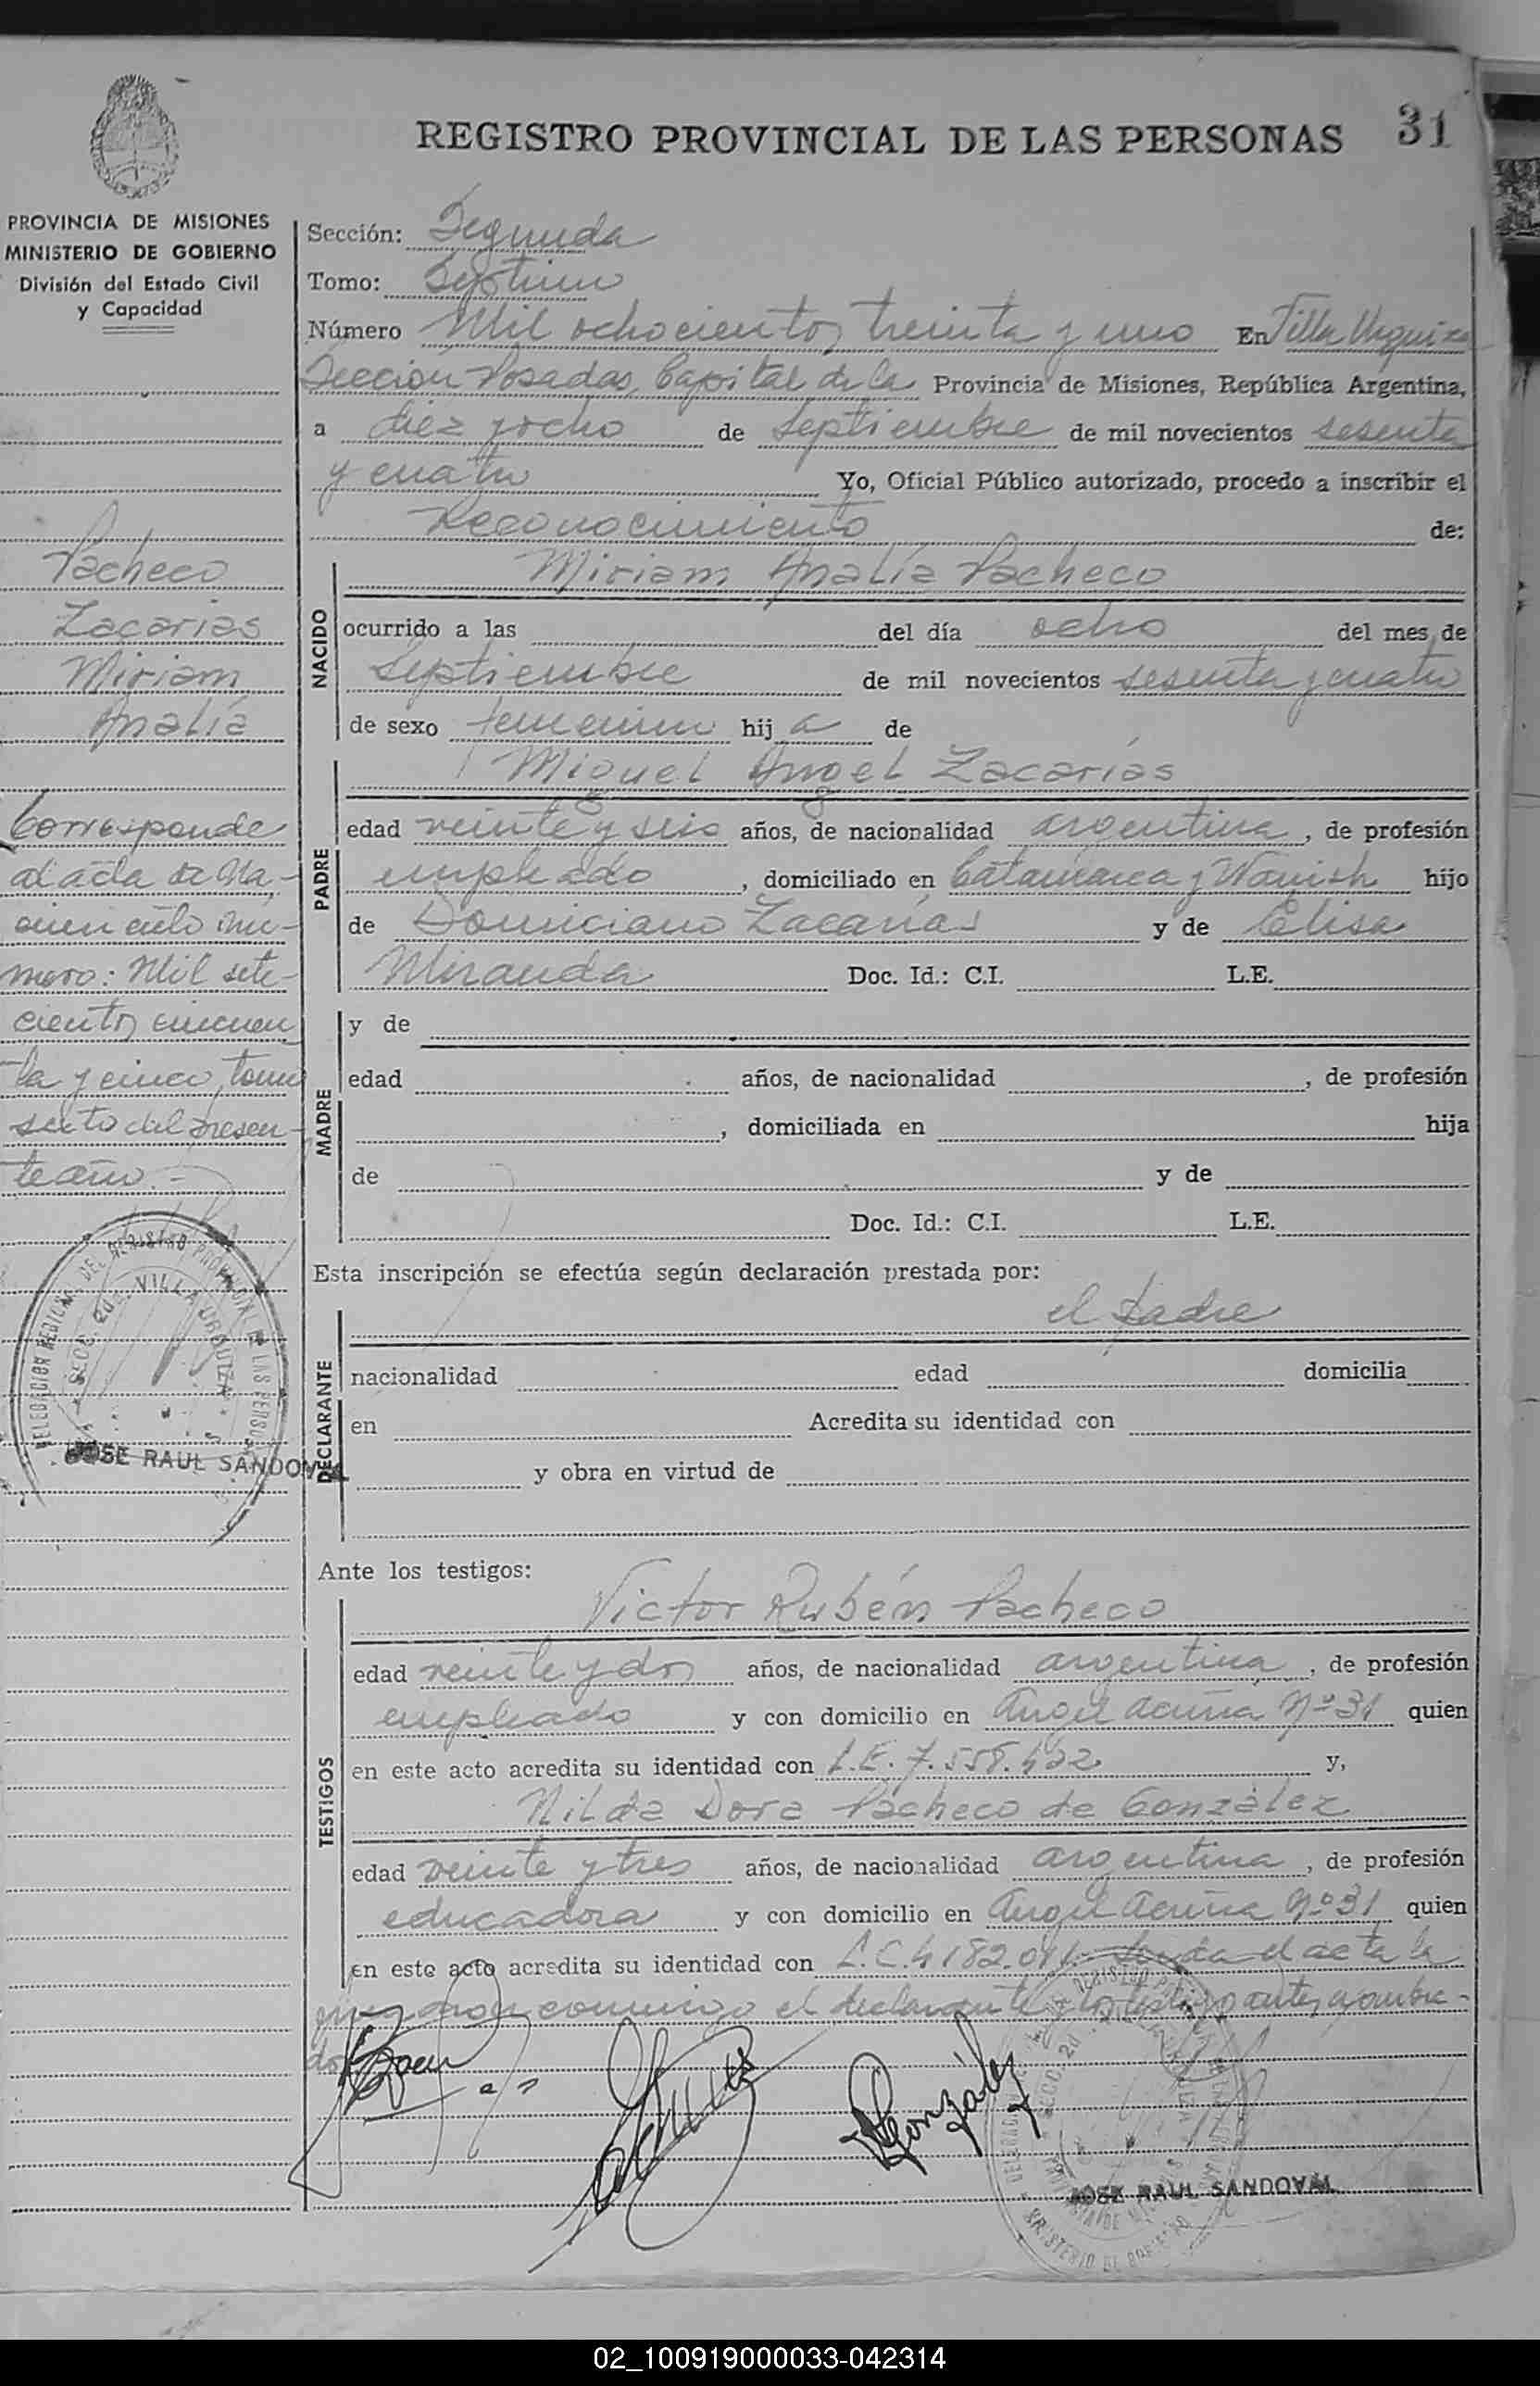 REGISTRO PROVINCIAL DE LAS PERSONAS 31
PROVINCIA DE MISIONES
MINISTERIO DE GOBIERNO
División del Estado Civil
y Capacidad
Pacheco
Zacarias
Miriam
Analía
Corresponde
al acta de Na-
cimiento nú-
mero: Mil sete-
cientos cincuen
ta y cinco, tomo
sexto del presen-
te año.-
VILLA URQUIZA
JOSE RAUL SANDOVAL
Sección: Segunda
Tomo: Septimo
Número Mil ochocientos treinta y uno En Villa Urquiza
Sección Posadas, Capital de la Provincia de Misiones, República Argentina,
a diez y ocho de Septiembre de mil novecientos sesenta
y cuatro Yo, Oficial Público autorizado, procedo a inscribir el
Reconocimiento de:
Miriam Analía Pacheco
NACIDO
ocurrido a las del día ocho del mes de
Septiembre de mil novecientos sesenta y cuatro
de sexo femenino hij a de
Miguel Angel Zacarías
PADRE
edad veinte y seis años, de nacionalidad argentina, de profesión
empleado, domiciliado en Catamarca y Wanish hijo
de Domiciano Zacarías y de Elisa
Miranda Doc. Id.: C.I. L.E.
MADRE
y de
edad años, de nacionalidad , de profesión
, domiciliada en hija
de y de
Doc. Id.: C.I. L.E.
Esta inscripción se efectúa según declaración prestada por:
el padre
DECLARANTE
nacionalidad edad domicilia
en Acredita su identidad con
y obra en virtud de
Ante los testigos:
Victor Rubén Pacheco
TESTIGOS
edad veinte y dos años, de nacionalidad argentina, de profesión
empleado y con domicilio en Angel Acuña Nº 31 quien
en este acto acredita su identidad con L.E. 7.558.422 y,
Nilda Dora Pacheco de González
edad veinte y tres años, de nacionalidad argentina, de profesión
educadora y con domicilio en Angel Acuña Nº 31 quien
en este acto acredita su identidad con L.C. 4182.011. Leída el acta la
firman conmigo el declarante y los testigos antes nombra-
dos
González
JOSE RAUL SANDOVAL
02_100919000033-042314